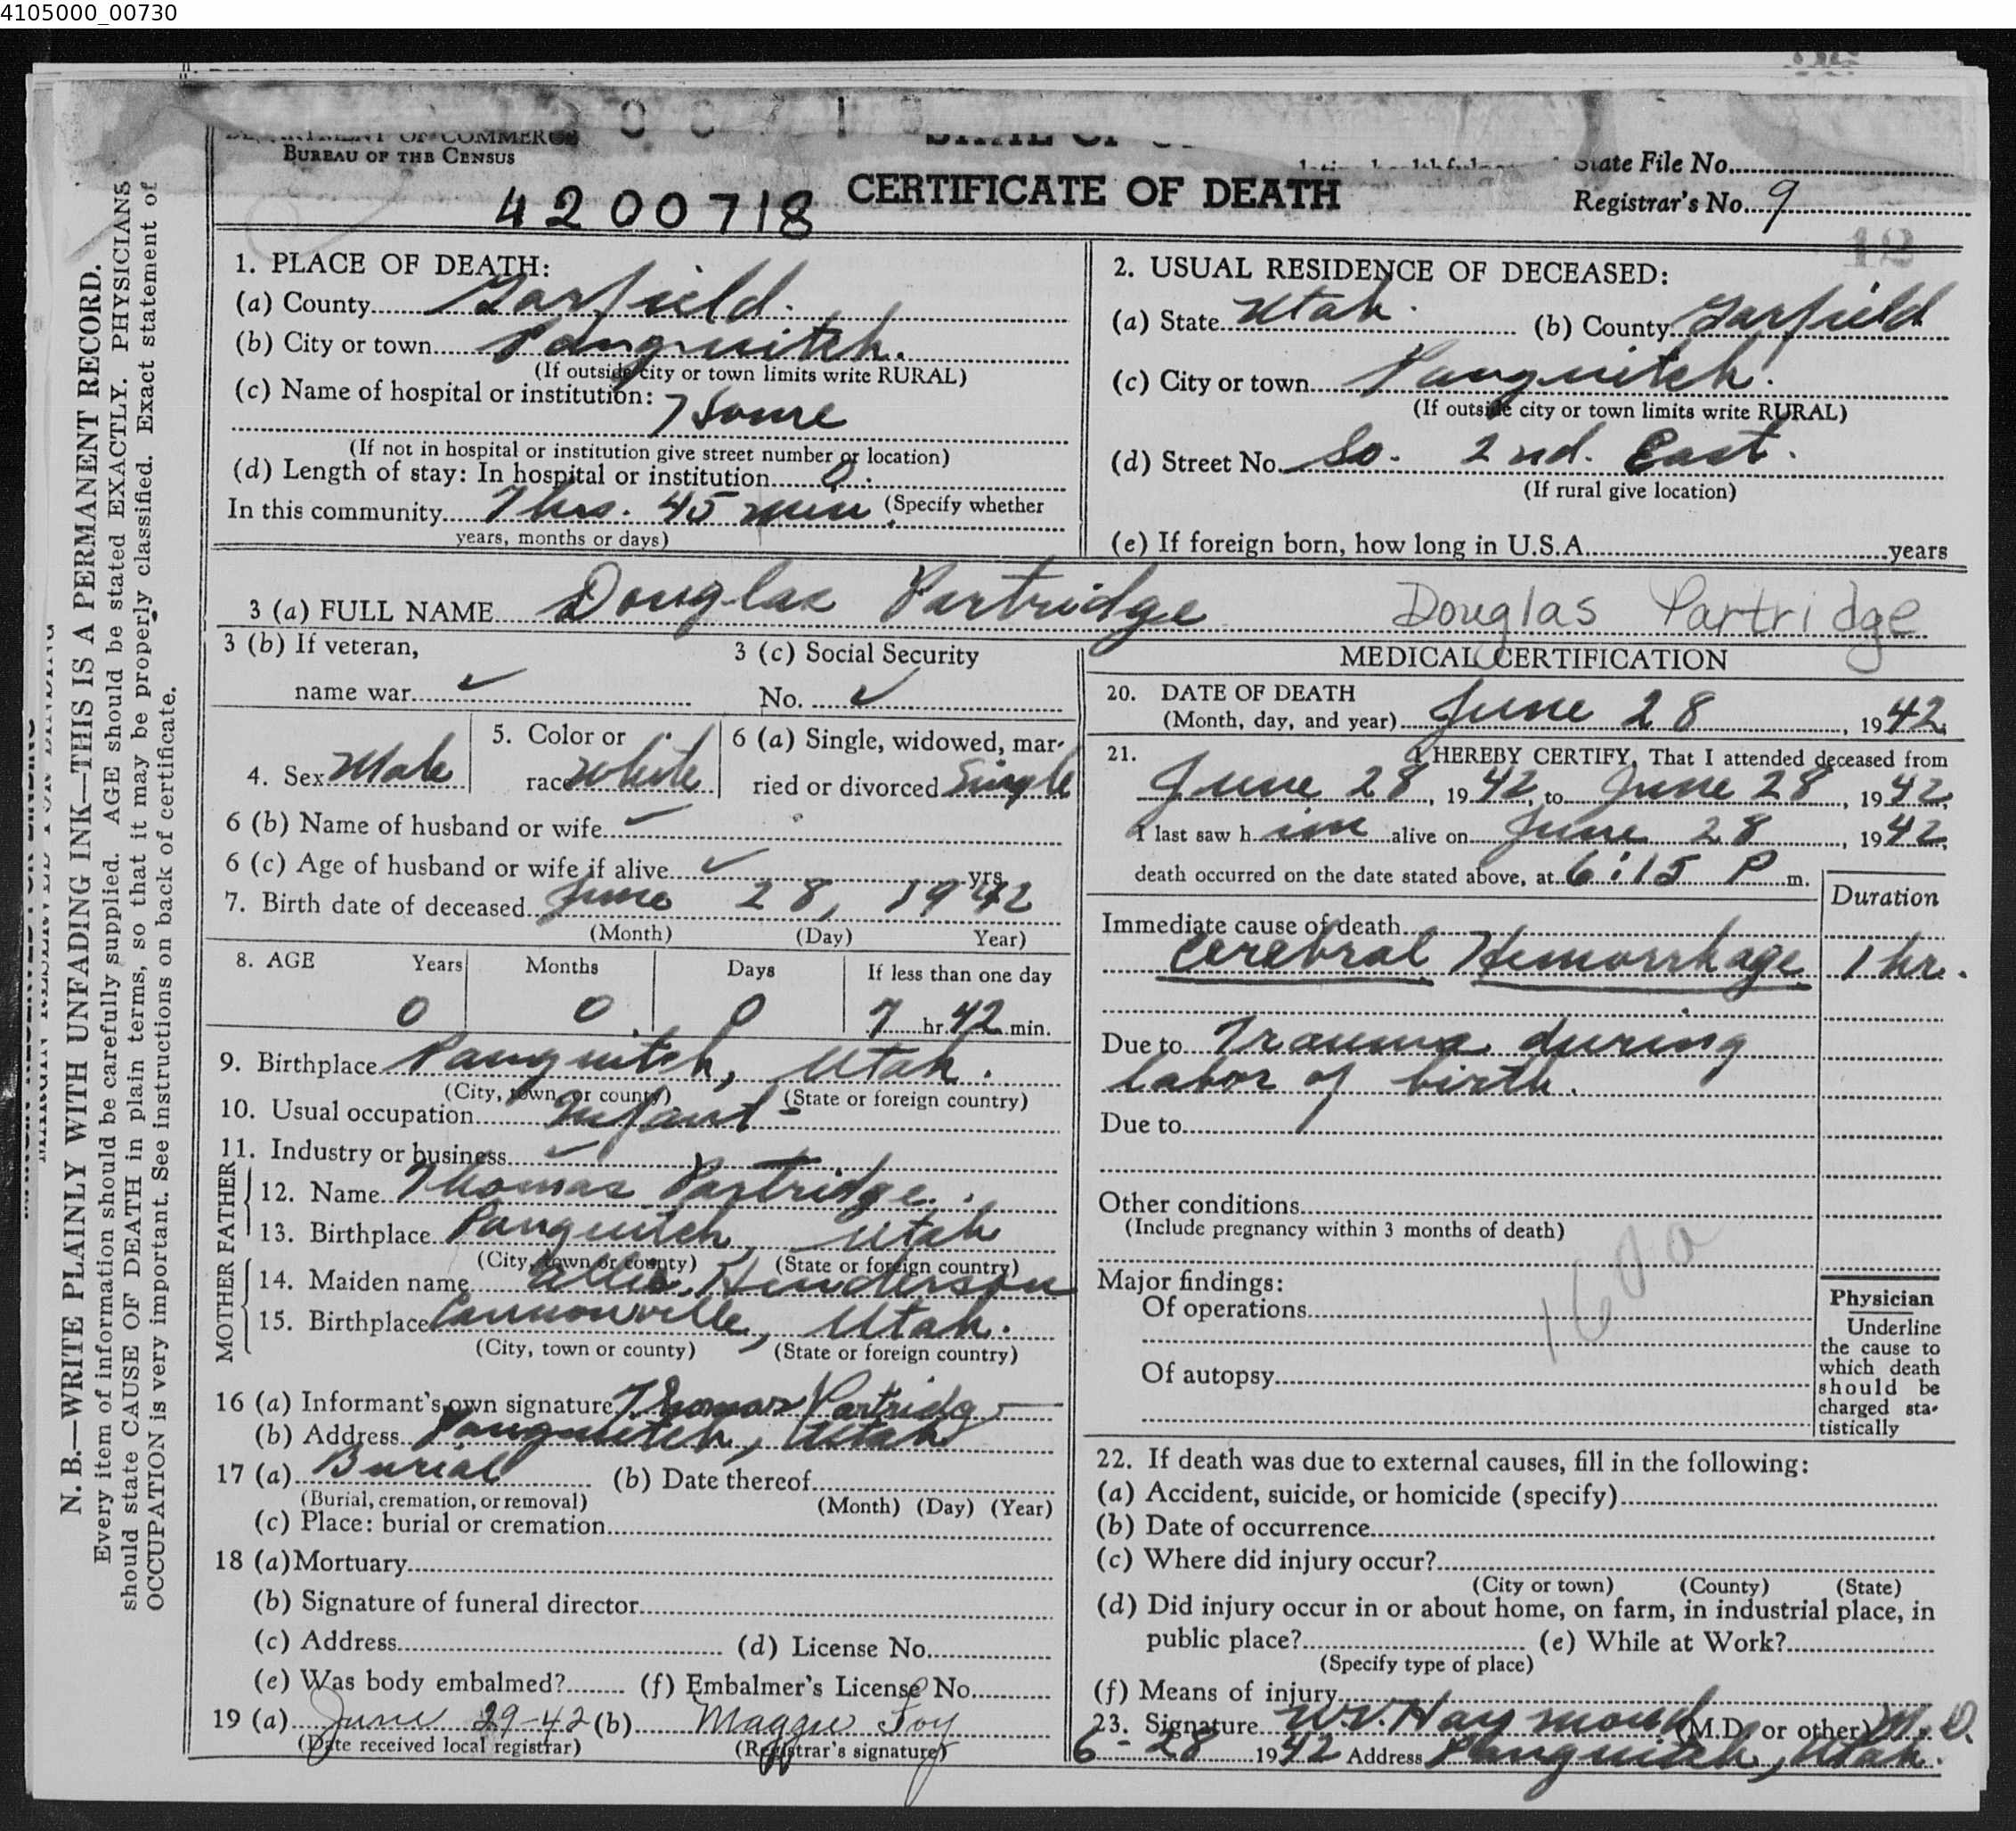 4105000_00730
DEPARTMENT OF COMMERCE
BUREAU OF THE CENSUS
STATE OF
State File No.
4200718 CERTIFICATE OF DEATH Registrar's No. 9
12
1. PLACE OF DEATH:
(a) County Garfield.
(b) City or town Panguitch.
(If outside city or town limits write RURAL)
(c) Name of hospital or institution:
Home
(If not in hospital or institution give street number or location)
(d) Length of stay: In hospital or institution 0.
In this community 7 hrs. 45 min (Specify whether
years, months or days)
2. USUAL RESIDENCE OF DECEASED:
(a) State Utah. (b) County Garfield
(c) City or town Panguitch.
(If outside city or town limits write RURAL)
(d) Street No. So. 2nd. East.
(If rural give location)
(e) If foreign born, how long in U.S.A. years
3 (a) FULL NAME Douglas Partridge Douglas Partridge
3 (b) If veteran,
name war ✓
3 (c) Social Security
No. ✓
4. Sex Male
5. Color or
race White
6 (a) Single, widowed, mar-
ried or divorced Single
6 (b) Name of husband or wife ✓
6 (c) Age of husband or wife if alive ✓ yrs.
7. Birth date of deceased June 28, 1942
(Month) (Day) Year)
8. AGE Years Months Days If less than one day
0 0 0 7 hr. 42 min.
9. Birthplace Panguitch, Utah.
(City, town, or county) (State or foreign country)
10. Usual occupation Infant
11. Industry or business ✓
FATHER
12. Name Thomas Partridge.
13. Birthplace Panguitch, Utah
(City, town or county) (State or foreign country)
MOTHER
14. Maiden name Allie Henderson
15. Birthplace Cannonville, Utah.
(City, town or county) (State or foreign country)
16 (a) Informant's own signature Thomas Partridge
(b) Address Panguitch, Utah
17 (a) Burial (b) Date thereof
(Burial, cremation, or removal) (Month) (Day) (Year)
(c) Place: burial or cremation
18 (a) Mortuary
(b) Signature of funeral director
(c) Address (d) License No.
(e) Was body embalmed? (f) Embalmer's License No.
19 (a) June 29-42 (b) Maggie Foy
(Date received local registrar) (Registrar's signature)
MEDICAL CERTIFICATION
20. DATE OF DEATH
(Month, day, and year) June 28, 1942
21. I HEREBY CERTIFY, That I attended deceased from
June 28, 1942, to June 28, 1942,
I last saw him alive on June 28, 1942,
death occurred on the date stated above, at 6:15 P m.
Duration
Immediate cause of death
Cerebral Hemorrhage 1 hr.
Due to Trauma during
labor of birth.
Due to
Other conditions
(Include pregnancy within 3 months of death)
160a
Major findings:
Of operations
Of autopsy
Physician
Underline
the cause to
which death
should be
charged sta-
tistically
22. If death was due to external causes, fill in the following:
(a) Accident, suicide, or homicide (specify)
(b) Date of occurrence
(c) Where did injury occur?
(City or town) (County) (State)
(d) Did injury occur in or about home, on farm, in industrial place, in
public place? (e) While at Work?
(Specify type of place)
(f) Means of injury
23. Signature W.V. Haymond (M.D. or other) M.D.
6-28 1942 Address Panguitch, Utah.
N. B.—WRITE PLAINLY WITH UNFADING INK—THIS IS A PERMANENT RECORD.
Every item of information should be carefully supplied. AGE should be stated EXACTLY. PHYSICIANS
should state CAUSE OF DEATH in plain terms, so that it may be properly classified. Exact statement of
OCCUPATION is very important. See instructions on back of certificate.